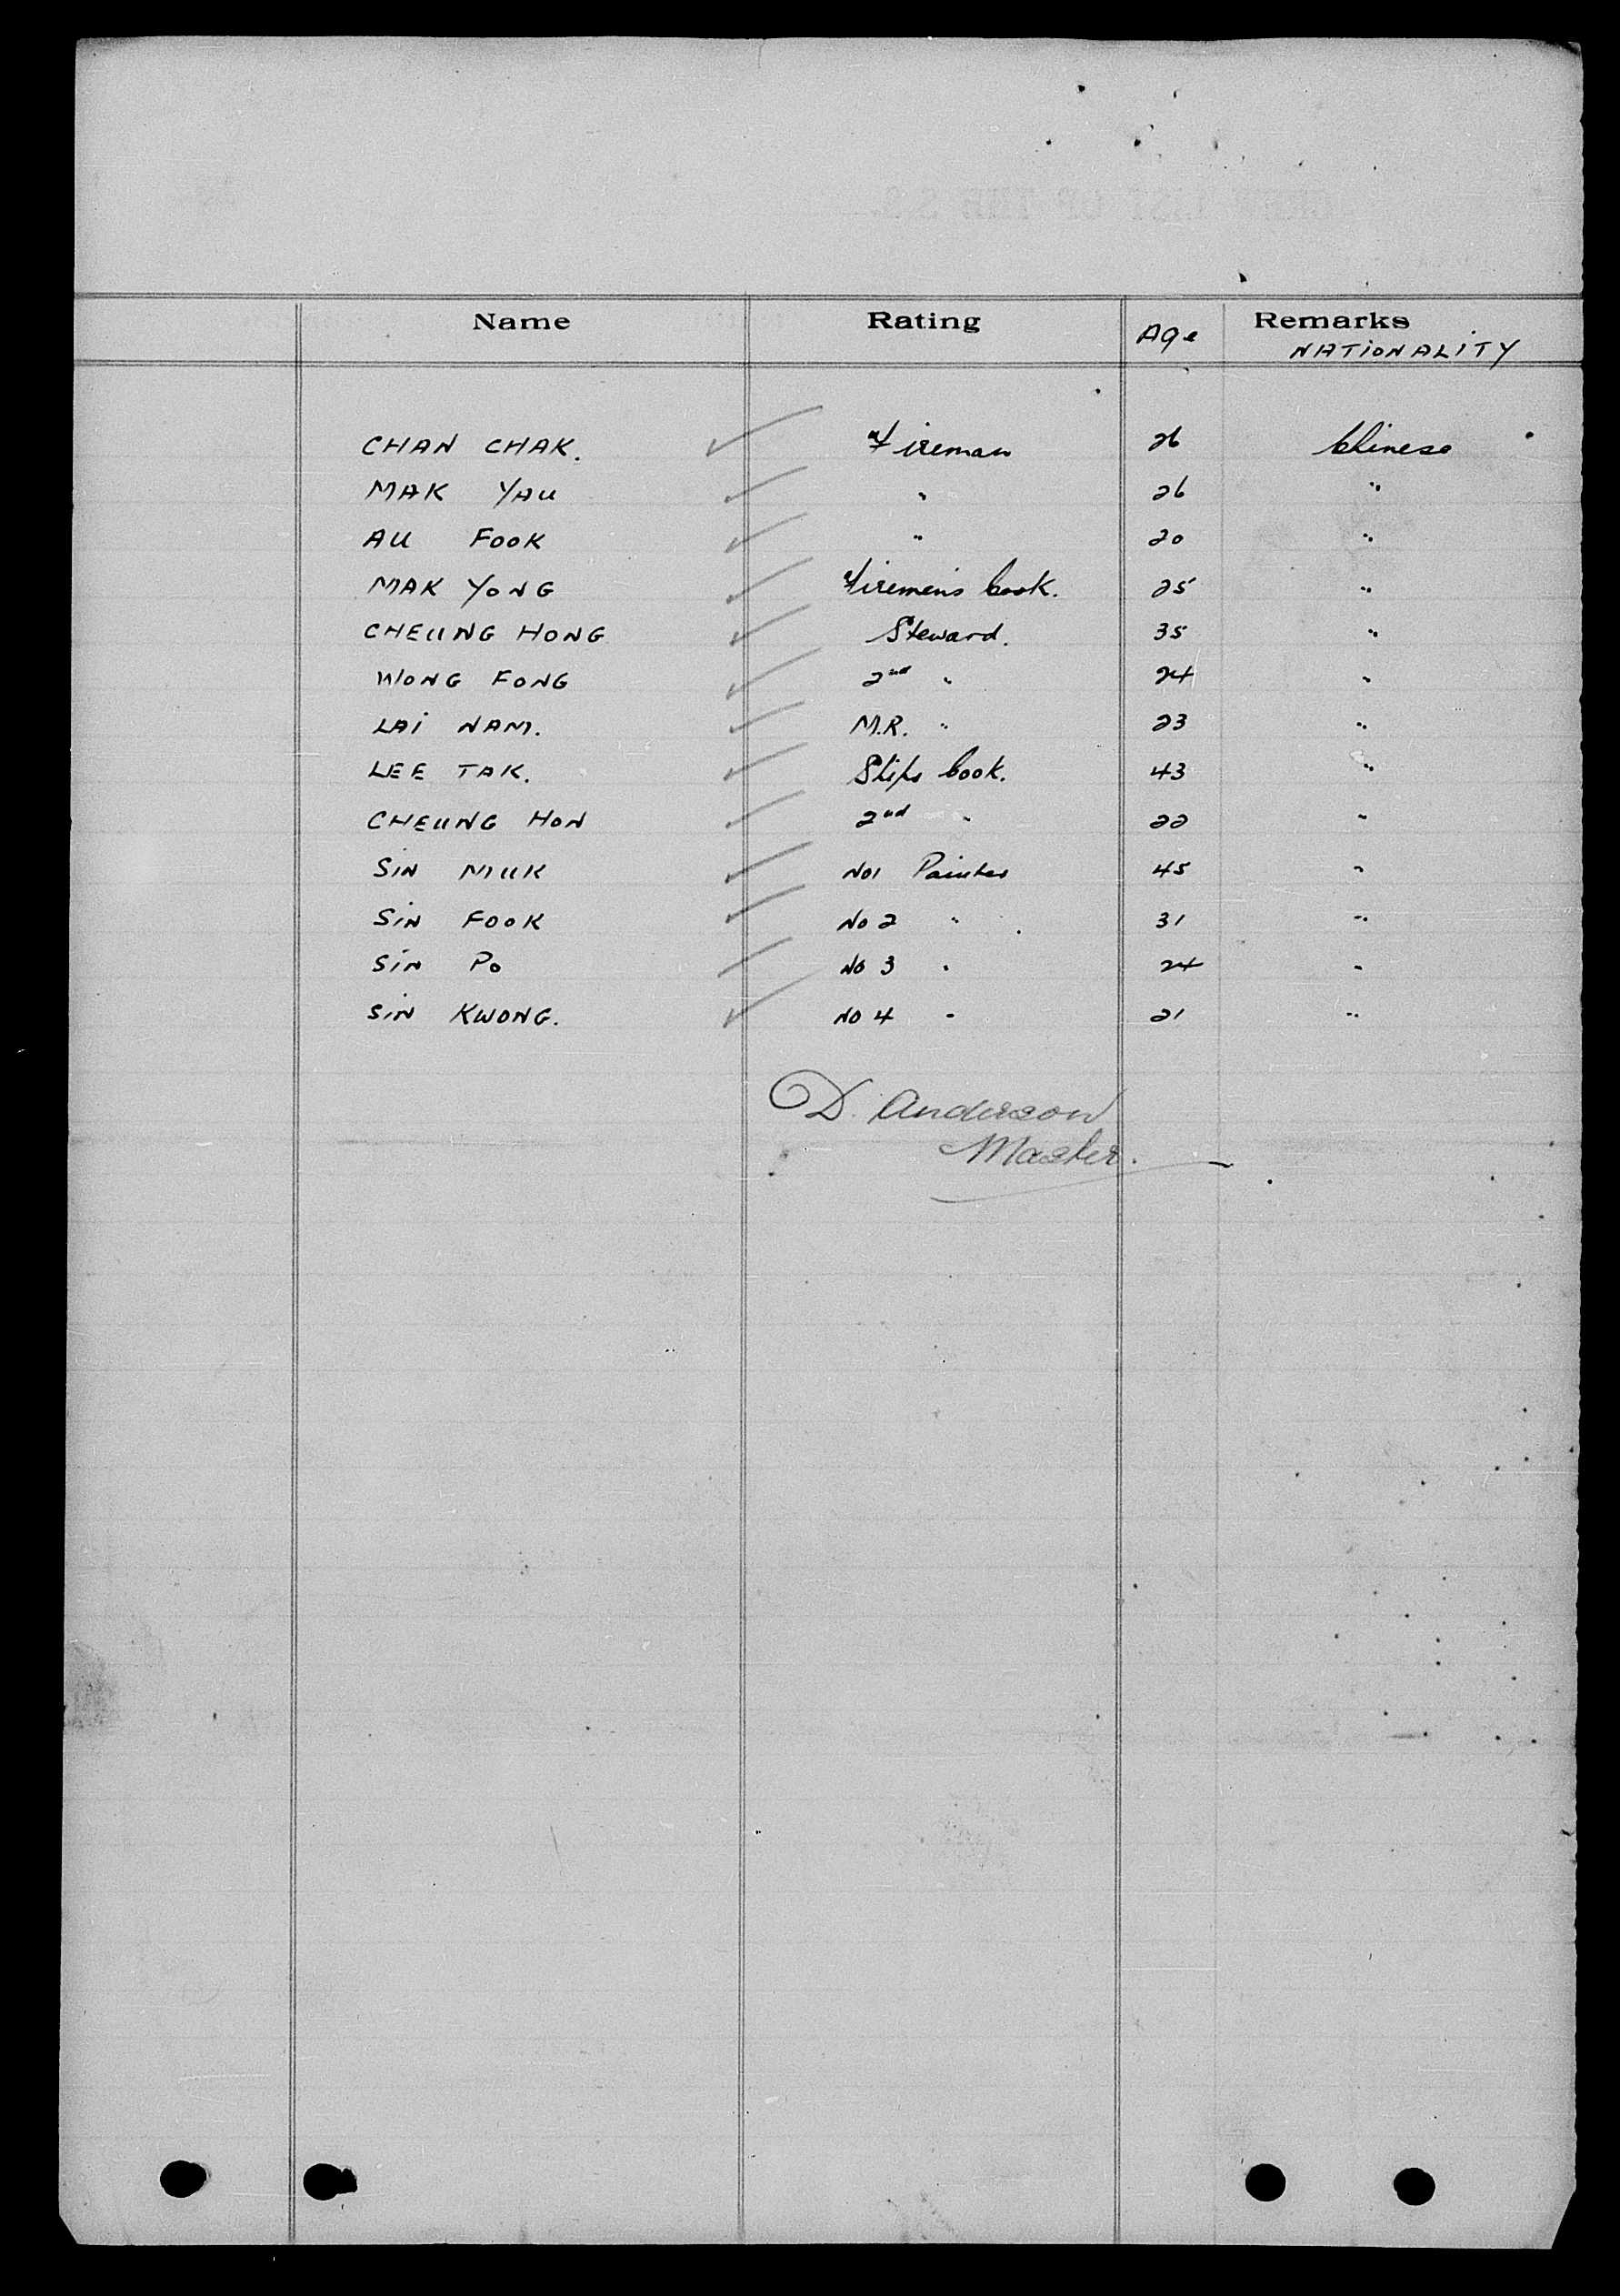 Name Rating Age Remarks
NATIONALITY
CHAN CHAK. Fireman 26 Chinese
MAK YAU " 26 "
AU FOOK " 20 "
MAK YONG Firemens Cook. 25 "
CHEUNG HONG Steward. 35 "
WONG FONG 2nd " 24 "
LAI NAM. M.R. " 23 "
LEE TAK. Ships Cook. 43 "
CHEUNG HON 2nd " 22 "
SIN MUK No1 Painter 45 "
SIN FOOK No 2 " 31 "
SIN PO No 3 " 24 "
SIN KWONG. No 4 " 21 "
D. Anderson
Master.